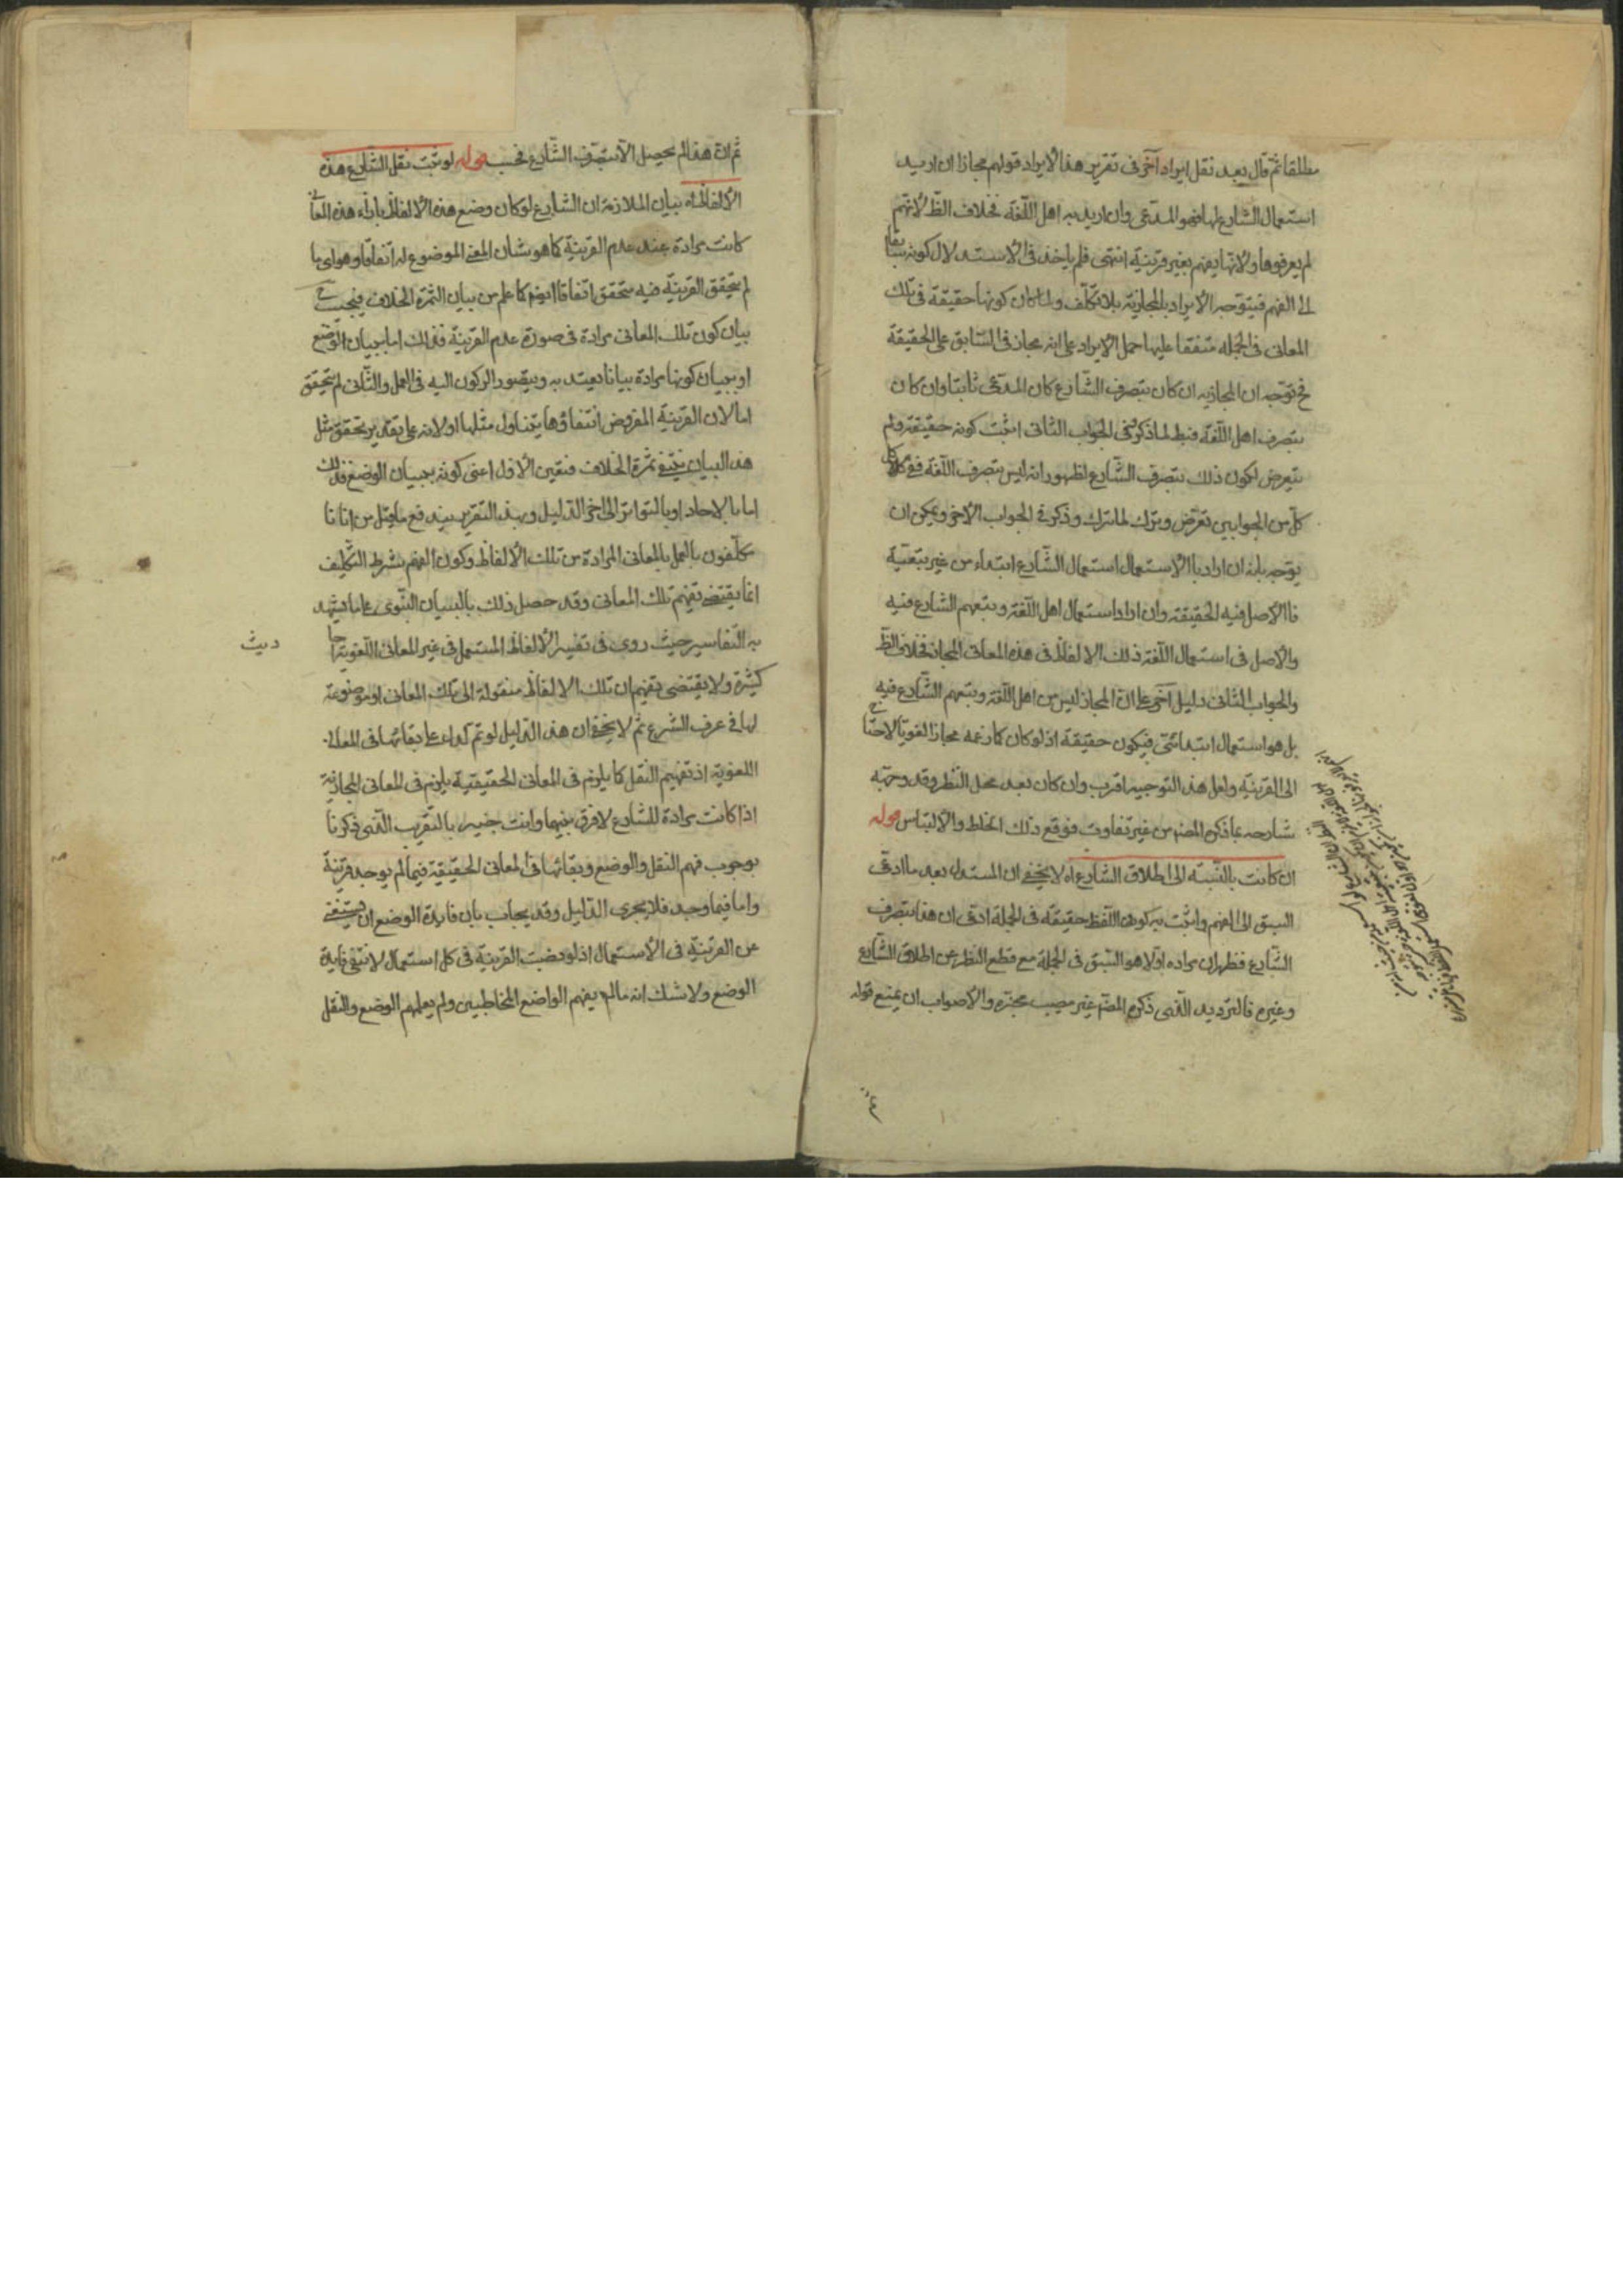 مطلقا ثم قال بعد نقل ايراد آخر فى تقرير هذا الايراد قولهم مجازا ان اريد
استعمال الشارع لها فهو المدعى وان اريد به اهل اللغة فخلاف الظ لانهم
لم يعرفوها ولانها يفهم بغير قرينة انتهى فلم ياخذ فى الاستدلال كونه سابقا
الى الفهم فيتوجه الايراد بالمجازية بلا تكلف ولما كان كونها حقيقة فى تلك
المعانى فى الجملة متفقا عليها حمل الايراد على انه مجاز فى السابق على الحقيقة
فح توجه ان المجازية ان كان بتصرف الشارع كان المدعى ثابتا وان كان
بتصرف اهل اللغة فبط لما ذكر وفى الجواب الثانى اثبت كونه حقيقة ولم
يتعرض لكون ذلك بتصرف الشارع لظهور انه ليس بتصرف اللغة ففى كل
كل من الجوابين تعرض وترك لما ترك وذكر فى الجواب الاخر ويمكن ان
يوجه بانه ان اراد بالاستعمال استعمال الشارع ابتداء من غير تبعية
فالاصل فيه الحقيقة وان اراد استعمال اهل اللغة وتبعهم الشارع فيه
والاصل فى استعمال اللغة ذلك الالفاظ فى هذه المعانى المجاز فخلاف الظ
والجواب الثانى دليل آخر على ان المجاز ليس من اهل اللغة وتبعهم الشارع فيه
بل هو استعمال ابتدائى فيكون حقيقة اذ لو كان كما زعمه مجازا لغويا لاحتاج
الى القرينة ولعل هذا التوجيه اقرب وان كان بعد محل النظر وقد وجهه
شارحه بما ذكره المض من غير تفاوت فوقع ذلك الخلط والالتباس قوله
ان كانت بالنسبة الى اطلاق الشارع اه لا يخفى ان المستدل بعد ما ادعى
السبق الى الفهم واثبت به كون اللفظ حقيقة فى الجملة ادعى ان هذا بتصرف
الشارع فظهر ان مراده اولا هو السبق فى الجملة مع قطع النظر عن اطلاق الشارع
وغيره فالترديد الذى ذكره المض غير مصيب محزه والاصواب ان يمنع قوله
ثم ان هذا لم يحصل الا بتصرف الشارع فحسب قوله لو ثبت نقل الشارع هذه
الالفاظ اه بيان الملازمة ان الشارع لو كان وضع هذه الالفاظ بازاء هذه المعانى
كانت مرادة عند عدم القرينة كما هو شان المعنى الموضوع له اتفاقا وهو اى ما
لم يتحقق القرينة فيه متحقق اتفاقا ايضا كما علم من بيان الثمرة الخلاف فيجب ح
بيان كون تلك المعانى مرادة فى صورة عدم القرينة فذلك اما ببيان الوضع
او ببيان كونها مرادة بيانا يعتد به ويتصور الركون اليه فى العمل والثانى لم يتحقق
اما لان القرينة المفروض انتفاؤها يتناول مثلها او لانه على تقدير تحقق مثل
هذا البيان ينتفى ثمرة الخلاف فتعين الاول اعنى كونه ببيان الوضع فذلك
اما بالاحاد او بالتواتر الى اخر الدليل وبهذا التقرير يندفع ما قيل من اننا انا
مكلفون بالعمل بالمعانى المرادة من تلك الالفاظ وكون الفهم شرط التكليف
انما يقتضى تفهيم تلك المعانى وقد حصل ذلك بالبيان النبوى على ما يشهد
به التفاسير حيث روى فى تفسير الالفاظ المستعمل فى غير المعانى اللغوية احا
ديث
كثيرة ولا يقتضى تفهيم ان تلك الالفاظ منقولة الى تلك المعانى او موضوعة
لها فى عرف الشرع ثم لا يخفى ان هذا الدليل لو تم لدل على بقائها فى المعانى
اللغوية اذ تفهيم النقل كما يلزم فى المعانى الحقيقية يلزم فى المعانى المجازية
اذا كانت مرادة للشارع لا فرق بينهما وانت خبير بالتقريب الذى ذكرنا
بوجوب فهم النقل والوضع وبقائها فى المعانى الحقيقية فيما لم يوجد قرينة
واما فيما وجد فلا يجرى الدليل وقد يجاب بان فايدة الوضع ان يستغنى
عن القرينة فى الاستعمال اذ لو نصبت القرينة فى كل استعمال لانتفى فايدة
الوضع ولا شك انه ما لم يفهم الواضع المخاطبين ولم يعلمهم الوضع والنقل